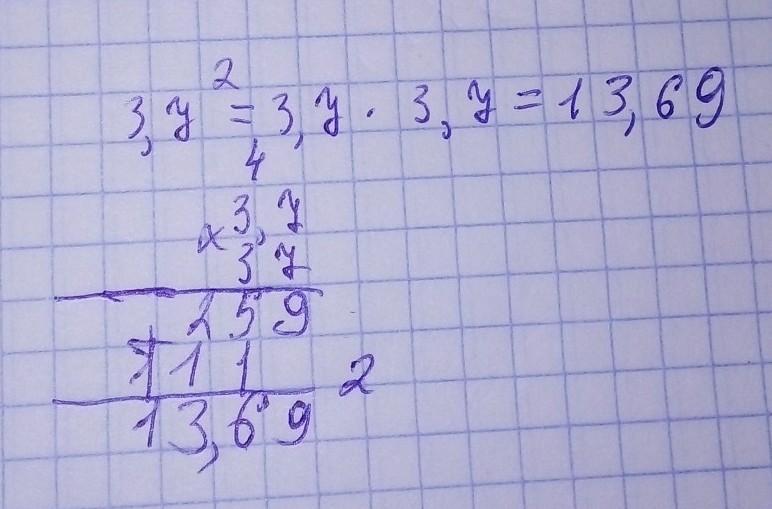 3,7² = 3,7 · 3,7 = 13,69
4
× 3,7
37
259
+ 111
2
13,69